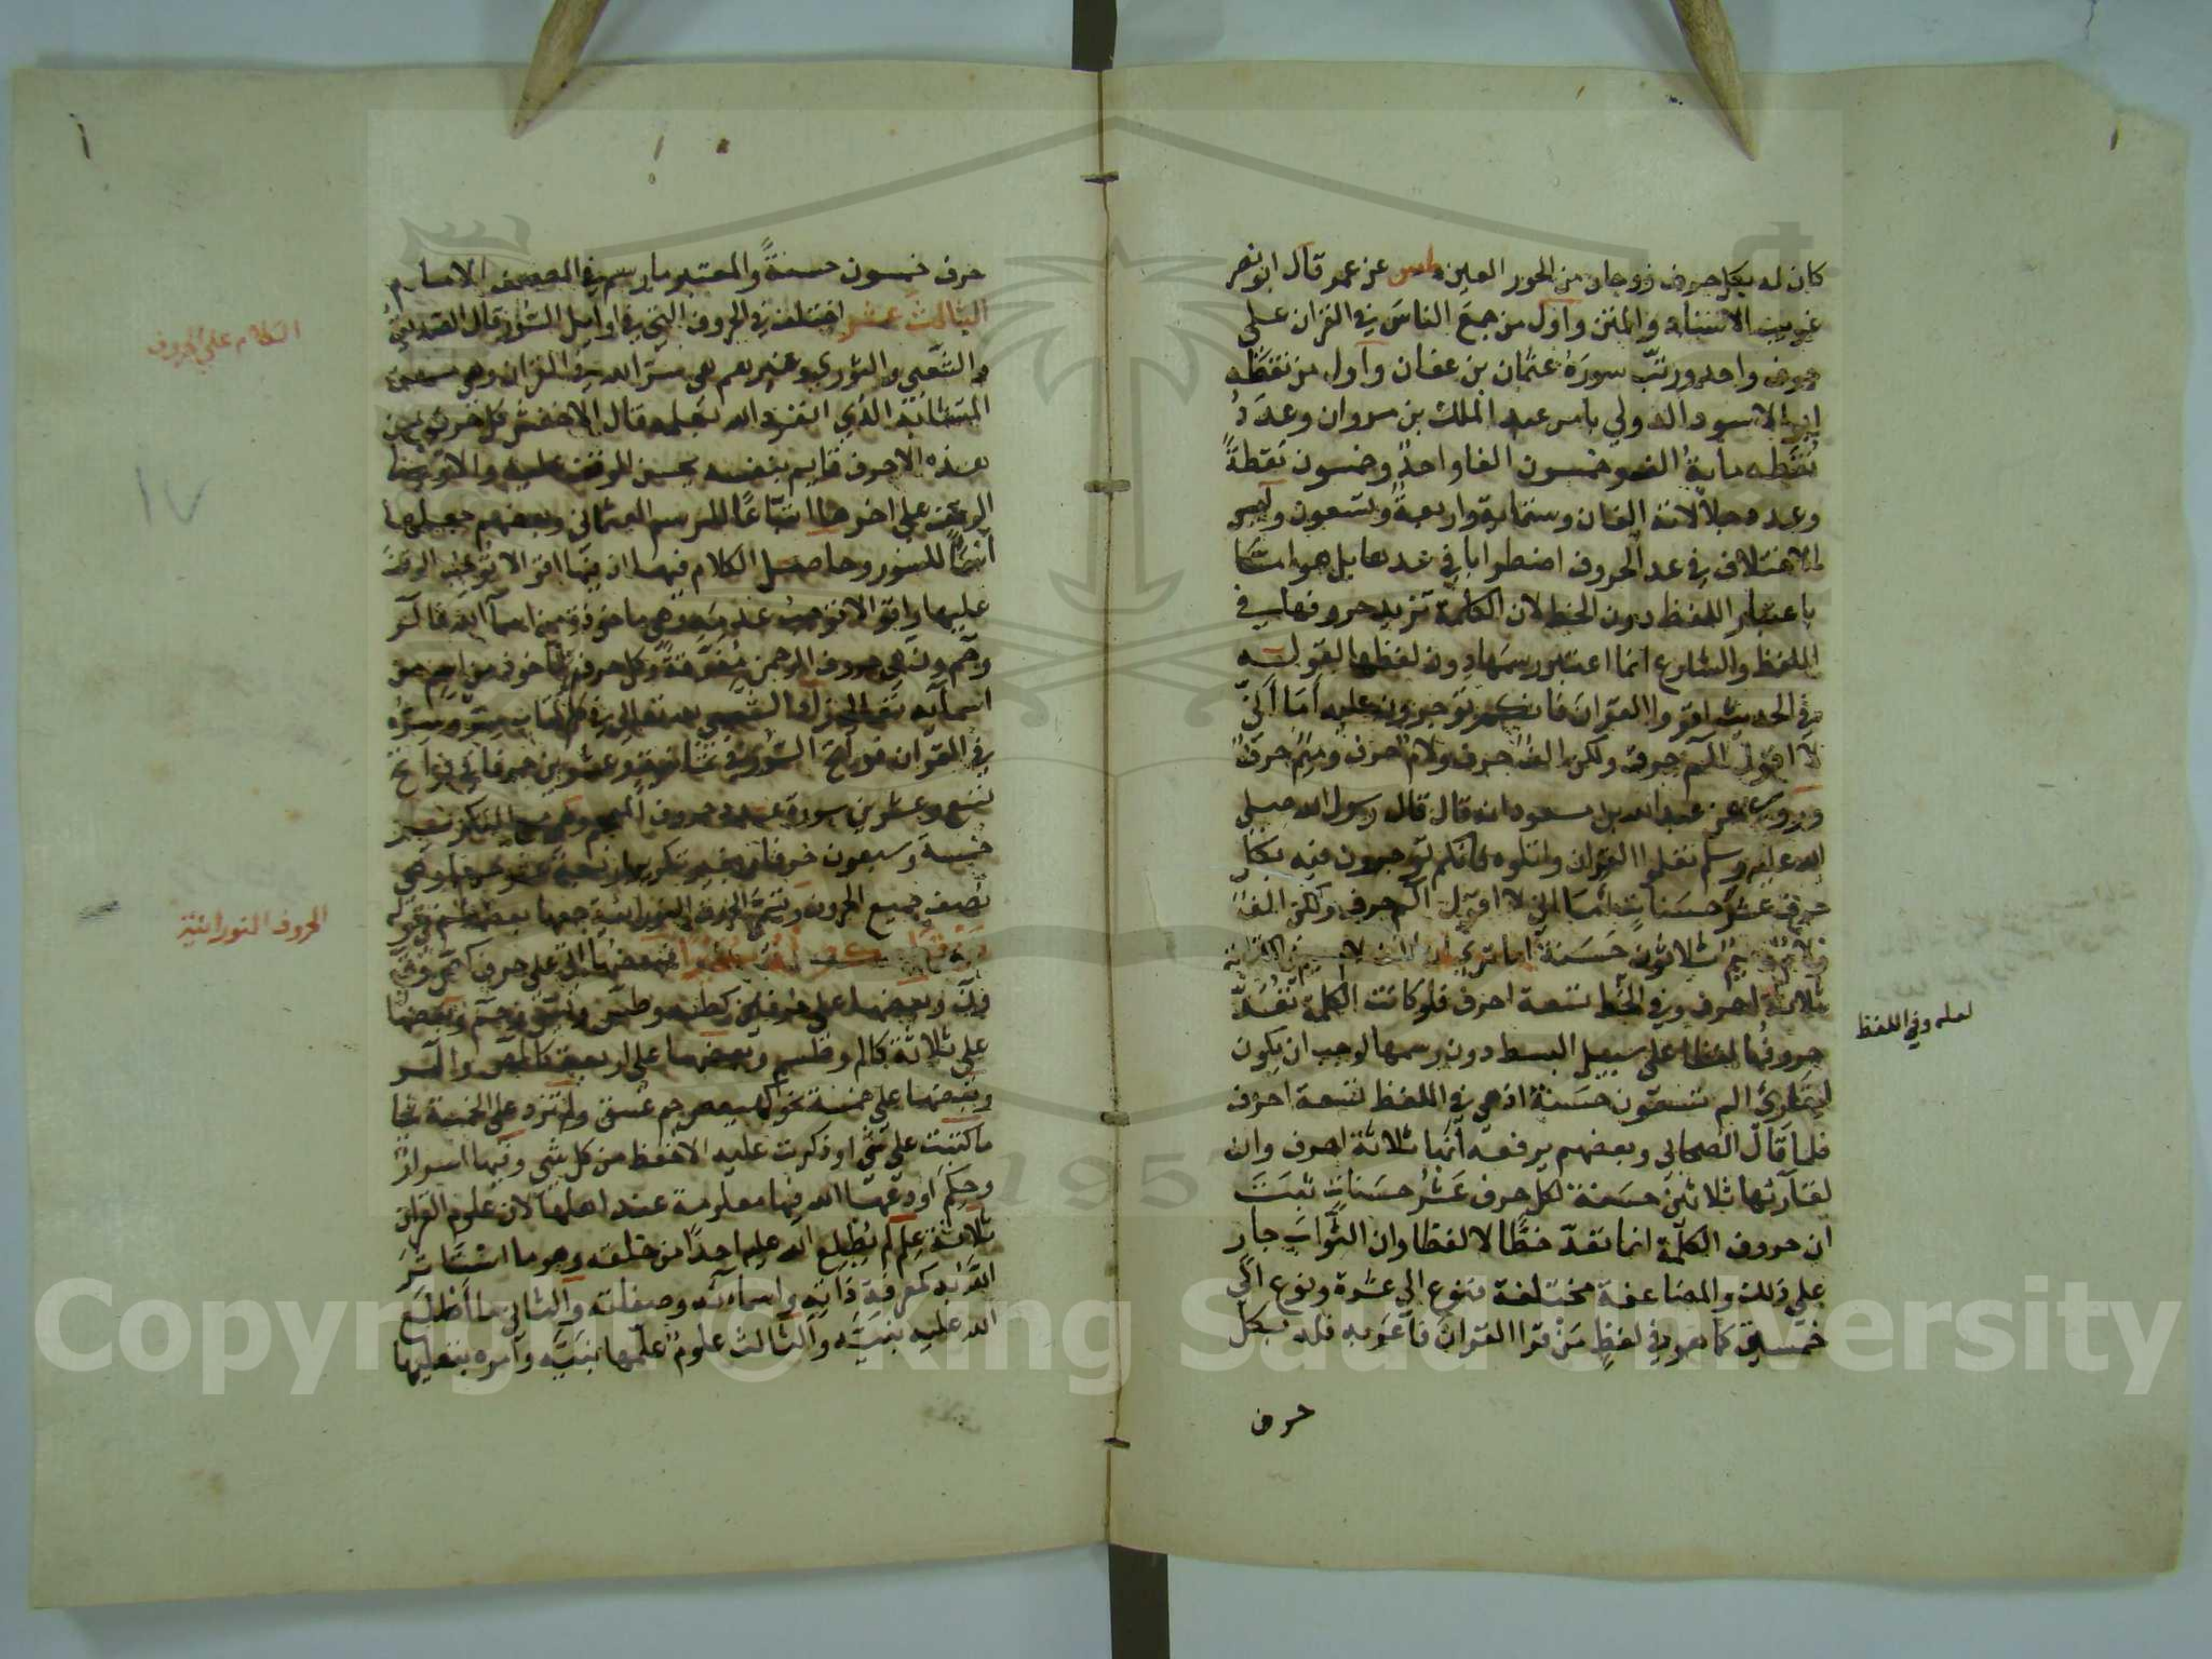 كان له بكل حرف زوجان من الحور العين طس عن عمر قال ابو نصر
غريب الاسناد والمتن واول من جمع الناس في القران على
حرف واحد ورتب سوره عثمان بن عفان واول من نقطه
ابو الاسود الدولي بامر عبد الملك بن مروان وعدد
نقطه ماية الف وخمسون الفا واحد وخمسون نقطة
وعدد جلالاته الفان وستماية واربعة وتسعون وليس
الاختلاف في عد الحروف اضطرابا في عدها بل هو اما
باعتبار اللفظ دون الخط لان الكلمة تزيد حروفها في
اللفظ والشارع انما اعتبر رسمها دون لفظها لقوله
في الحديث اقروا القران فانكم توجرون عليه أما اني
لا اقول الم حرف ولكن الف حرف ولام حرف وميم حرف
وروي عن عبد الله بن مسعود انه قال قال رسول الله صلى
الله عليه وسلم تعلموا القران واتلوه فانكم توجرون فيه بكل
حرف عشر حسنات أما اني لا اقول الم حرف ولكن الف
ولام وميم ثلاثون حسنة اما ترى ان الف لام ميم في
ثلاثة احرف وفي الخط تسعة احرف فلو كانت الكلمة تعد
حروفها لفظا على سبيل البسط دون رسمها لوجب ان يكون
لقارئ الم تسعون حسنة اذ هي في اللفظ تسعة احرف
فلما قال الصحابي وبعضهم يرفعه انها ثلاثة احرف وان
لقارئها ثلاثين حسنة لكل حرف عشر حسنات ثبت
ان حروف الكلمة انما تعد خطا لا لفظا وان الثواب جار
على ذلك والمضاعفة مختلفة فنوع الى عشرة ونوع الى
خمسين كما هو في لفظ من قرا القران فاعربه فله بكل
حرف
لعله وفي اللفظ
حرف خمسون حسنة والمعتبر ما رسم في المصحف الامام
الثالث عشر اختلف في الحروف التي في اوايل السور قال الصديق
والشعبي والثوري وغيرهم هي سر الله في القران وهي من
المتشابه الذي انفرد الله بعلمه وقال الاخفش كل حرف من
هذه الاحرف قايم بنفسه يحسن الوقف عليه والاولى
الوقف على اخرها اتباعا للرسم العثماني وبعضهم جعلها
اسما للسور وحاصل الكلام فيها ان فيها اقوالا
عليها
وحم ون هي حروف الرحمن مفرقة وكل حرف ماخوذ من اسم من
اسمائه تعالى قال الشعبي لله تعالى في كل كتاب سر وسره
في القران فواتح السور في ثمانية وعشرين حرفا في فواتح
تسع وعشرين سورة عدد حروف المعجم وهي مع التكرير
خمسة وسبعون حرفا وبغير تكرير اربعة عشر حرفا وهي
نصف جميع الحروف وتسمى الحروف النورانية جمعها بعضهم في قوله
فبعضها اتى على حرف كص وق
ون وبعضها على حرفين كطه وطس ويس وحم وبعضها
على ثلاثة كالم وطسم وبعضها على اربعة كالمص والمر
وبعضها على خمسة نحو كهيعص حم عسق ولم تزد على الخمسة شيا
ما كتبت على شي او ذكرت عليه الا حفظ من كل شي وفيها اسرار
وحكم اودعها الله فيها معلومة عند اهلها لان علوم القران
ثلاثة علم لم يطلع الله عليه احدا من خلقه وهو ما استاثر
الله به كمعرفة ذاته واسمائه وصفاته والثاني ما اطلع
الله عليه نبيه والثالث علوم علمها نبيه وامره بتعليمها
الكلام على الحروف
الحروف النورانية
١٧
Copyright © King Saud University
1957